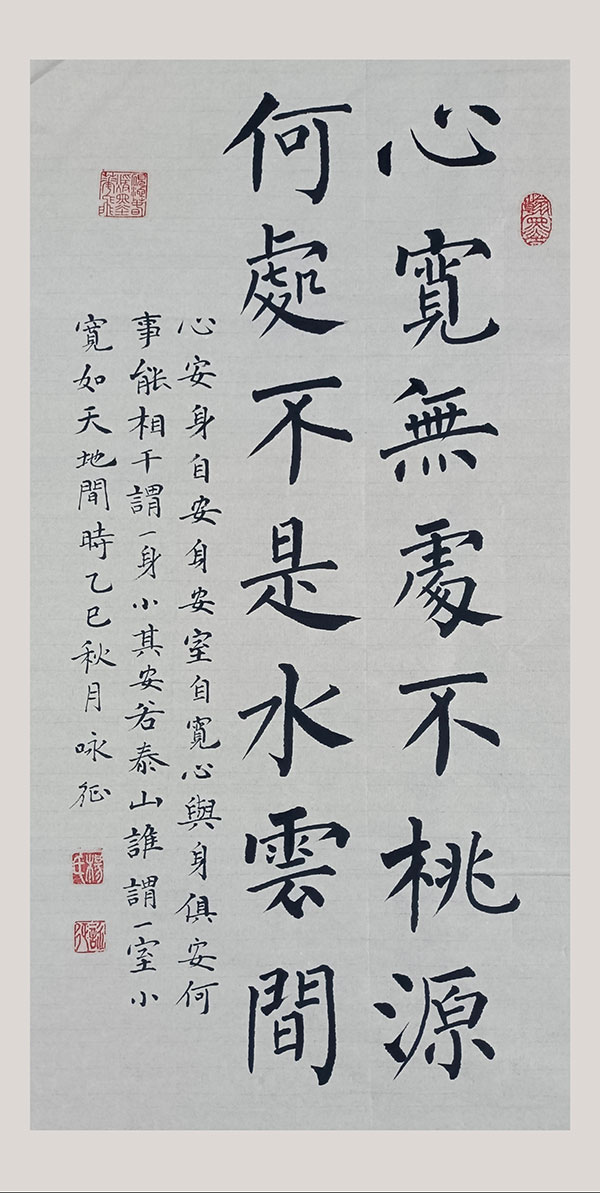 心寬無處不桃源
何處不是水雲間
心安身自安身安室自寬心與身俱安何
事能相干謂一身小其安若泰山誰謂一室小
寬如天地間時乙巳秋月咏征